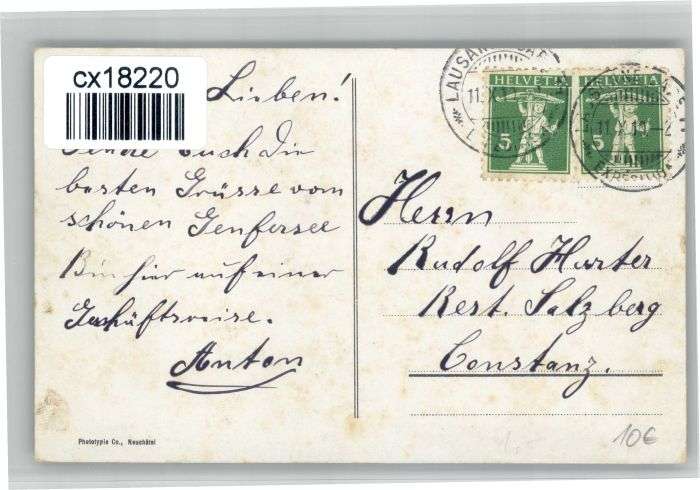 cx18220
Lieben!
Sende Euch die
besten Grüsse vom
schönen Genfersee
Bin hier auf einer
Geschäftsreise.
Anton
Phototypie Co., Neuchâtel
LAUSANNE
HELVETIA
5
HELVETIA
5
Herrn
Rudolf Harter
Rest. Salzberg
Constanz.
10€